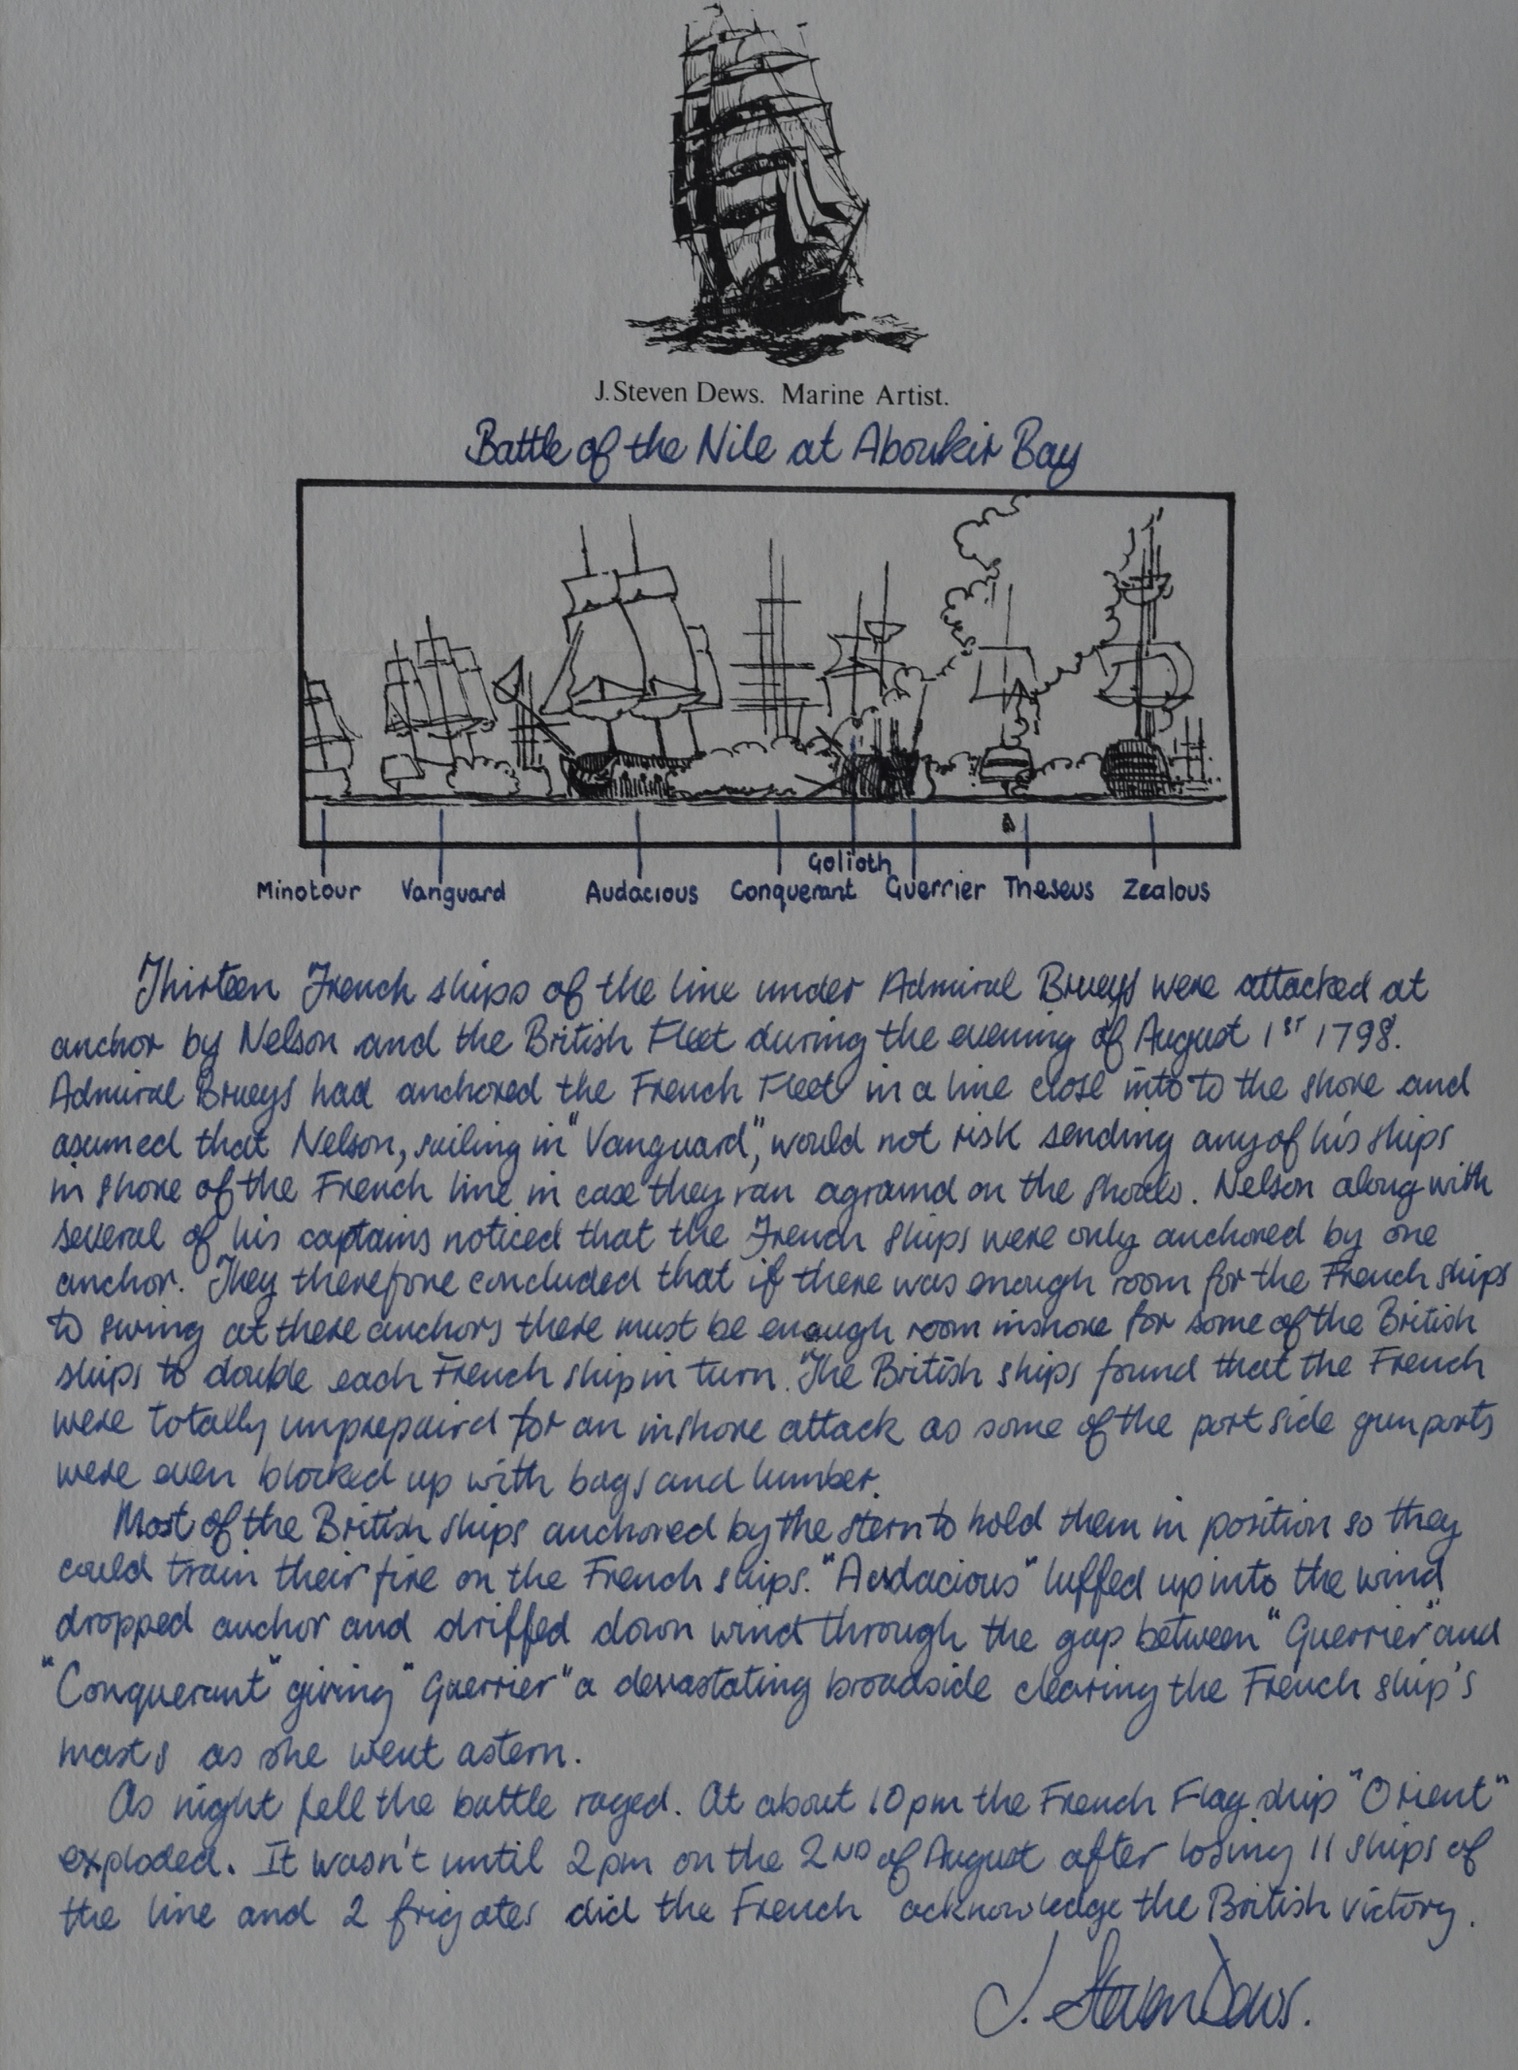 J. Steven Dews. Marine Artist.
Battle of the Nile at Aboukir Bay
Golioth
Minotour Vanguard Audacious Conquerant Guerrier Theseus Zealous
Thirteen French ships of the line under Admiral Brueys were attacked at
anchor by Nelson and the British Fleet during the evening of August 1ST 1798.
Admiral Brueys had anchored the French Fleet in a line close into to the shore and
asumed that Nelson, sailing in "Vanguard", would not risk sending any of his ships
in shore of the French line in case they ran aground on the shoals. Nelson along with
several of his captains noticed that the French ships were only anchored by one
anchor. They therefore concluded that if there was enough room for the French ships
to swing at there anchors there must be enough room inshore for some of the British
ships to double each French ship in turn. The British ships found that the French
were totally unprepaired for an inshore attack as some of the port side gunports
were even blocked up with bags and lumber.
Most of the British ships anchored by the stern to hold them in position so they
could train their fire on the French ships. "Audacious" luffed up into the wind
dropped anchor and driffed down wind through the gap between "Guerrier" and
"Conquerant" giving "Guerrier" a devastating broadside clearing the French ship's
masts as she went astern.
As night fell the battle raged. At about 10pm the French Flag ship "Orient"
exploded. It wasn't until 2pm on the 2ND of August after losing 11 ships of
the line and 2 frigates did the French acknowledge the British victory.
J. Steven Dews.